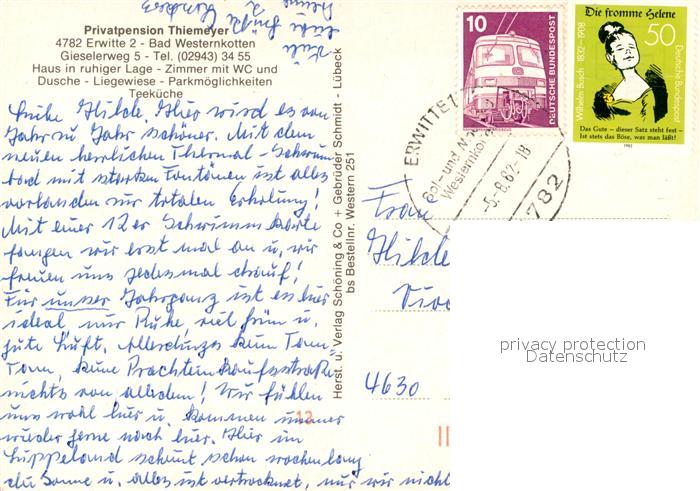 Privatpension Thiemeyer
4782 Erwitte 2 - Bad Westernkotten
Gieselerweg 5 - Tel. (02943) 34 55
Haus in ruhiger Lage - Zimmer mit WC und
Dusche - Liegewiese - Parkmöglichkeiten
Teeküche
Liebe Hilde, Hier wird es von
Jahr zu Jahr schöner. Mit dem
neuen herrlichen Thermal-Schwimm
bad mit starken Fontänen ist alles
vorhanden zur totalen Erholung!
Mit einer 12er Schwimmkarte
fangen wir erst mal an u. wir
freuen uns jedesmal drauf!
Für unser Jahrgang ist es hier
ideal, nur Ruhe, viel Grün u.
gute Luft. Allerdings kein Tam-
Tam, keine Prachteinkaufsstraße
nichts von alledem! Wir fühlen
uns wohl hier u. kommen immer
wieder gerne nach hier. Hier im
Lippeland scheint schon wochenlang
die Sonne u. alles ist vertrocknet, nur wir nicht
Herst. u. Verlag Schöning & Co + Gebrüder Schmidt - Lübeck
bs Bestellnr. Western 251
10
DEUTSCHE BUNDESPOST
Die fromme Helene
50
Wilhelm Busch 1832-1908
Deutsche Bundespost
Das Gute – dieser Satz steht fest –
Ist stets das Böse, was man läßt!
1982
ERWITTE
Westernkotten
-5.-8.82-18
4782
Frau
Hilde
4630
12
privacy protection
Datenschutz